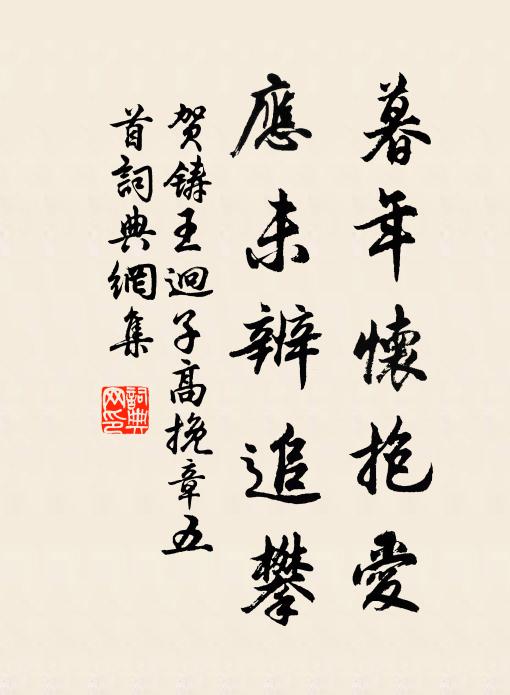 暮年懷抱愛
應未辨追攀
賀鑄王迥子高挽章五
首詞典網集
詞典
网印